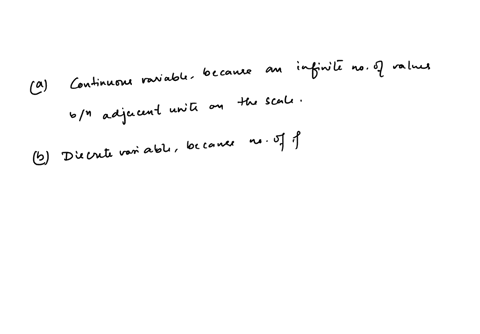 (a) Continuous variable, because an infinite no. of values
b/n adjacent units on the scale.
(b) Discrete variable, because no. of f